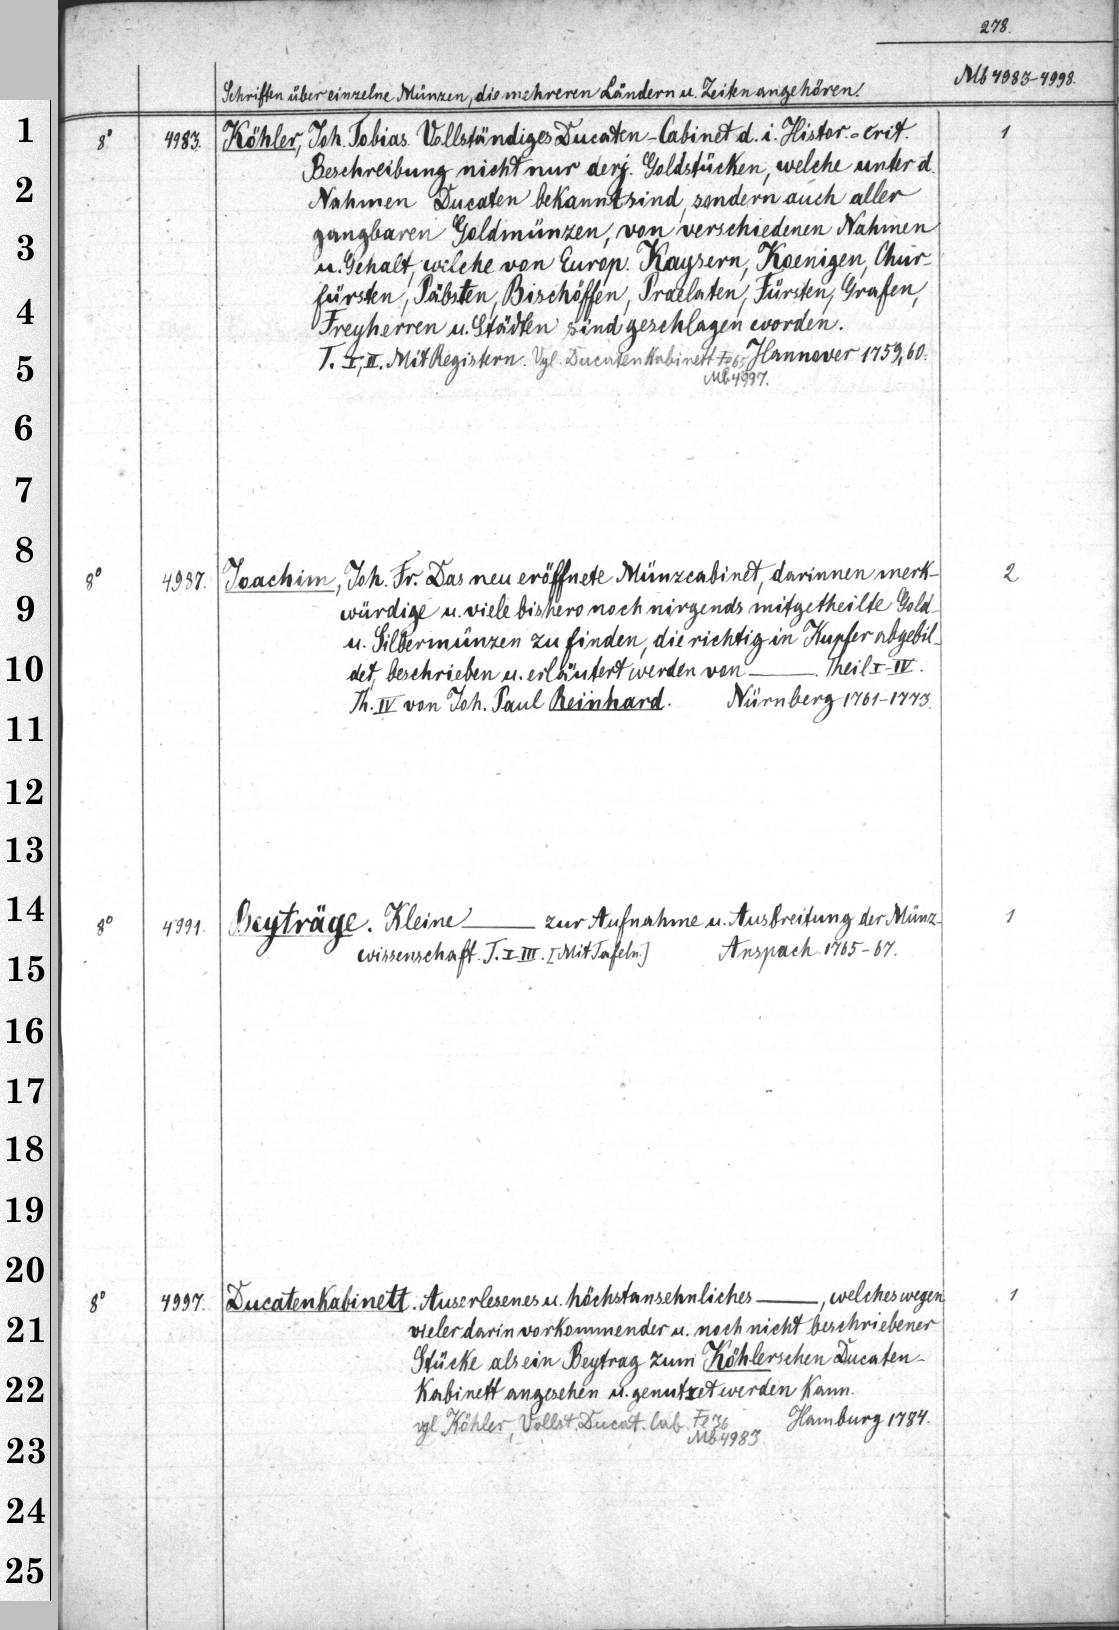 278.
Mb 4983-4998.
Schriften über einzelne Münzen, die mehreren Ländern u. Zeiten angehören.
1
8° 4983. Köhler, Joh. Tobias. Vollständiges Ducaten-Cabinet d. i. Histor.-crit. 1
Beschreibung nicht nur derj. Goldstücken, welche unter d.
2
Nahmen Ducaten bekannt sind, sondern auch aller
gangbaren Goldmünzen, von verschiedenen Nahmen
3
u. Gehalt, welche von Europ. Kaysern, Koenigen, Chur-
fürsten, Päbsten, Bischöffen, Praelaten, Fürsten, Grafen,
4
Freyherren u. Städten sind geschlagen worden.
T. I, II. Mit Registern. Vgl. Ducatenkabinett Hannover 1759, 60.
5
Mb 4997.
6
7
8
8° 4987. Joachim, Joh. Fr. Das neu eröffnete Münzcabinet, darinnen merk- 2
9
würdige u. viele bishero noch nirgends mitgetheilte Gold-
u. Silbermünzen zu finden, die richtig in Kupfer abgebil-
10
det, beschrieben u. erläutert werden von ———. Theil I-IV.
Th. IV von Joh. Paul Reinhard. Nürnberg 1761-1773.
11
12
13
14
8° 4991. Beyträge. Kleine ——— zur Aufnahme u. Ausbreitung der Münz- 1
wissenschaft. T. I-III. [Mit Tafeln.] Anspach 1765-67.
15
16
17
18
19
20
8° 4997. Ducatenkabinett. Auserlesenes u. höchstansehnliches ———, welches wegen 1
21
vieler darin vorkommender u. noch nicht beschriebener
Stücke als ein Beytrag zum Köhlerschen Ducaten-
22
Kabinett angesehen u. genutzet werden kann.
vgl. Köhler, Vollst. Ducat. Cab. Fe 36 Hamburg 1784.
Mb 4983
23
24
25